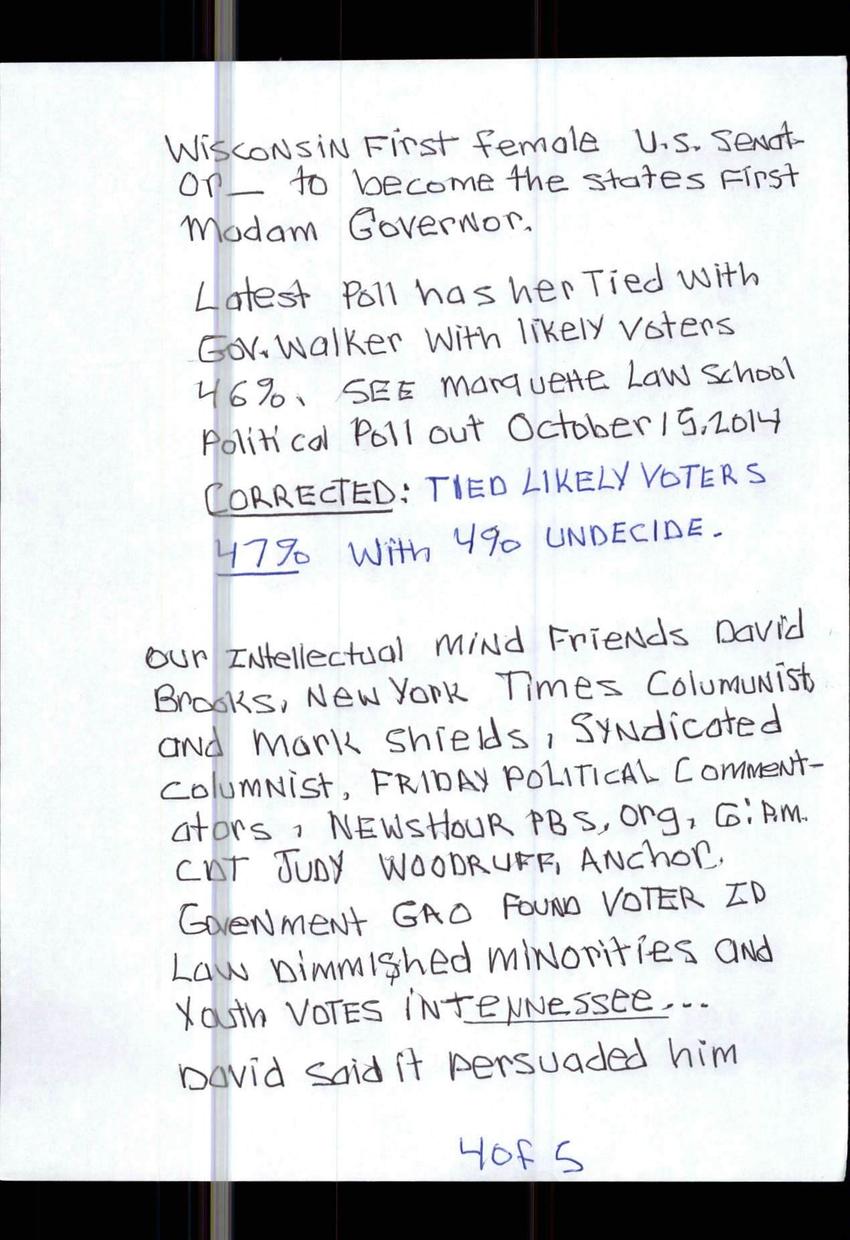 Wisconsin First female U.S. Senat-
or_ to become the states First
Madam Governor.
Latest Poll has her Tied With
Gov. Walker with likely voters
46%. SEE Marquette Law School
Political Poll out October 15, 2014
CORRECTED: TIED LIKELY VOTERS
47% With 4% UNDECIDE.
Our Intellectual Mind Friends David
Brooks, New York Times Columunist,
and Mark Shields, Syndicated
Columnist, FRIDAY POLITICAL Comment-
ators, NEWSHOUR PBS, Org, 6: P.M.
CDT JUDY WOODRUFF, Anchor.
Govenment GAO FOUND VOTER ID
Law Dimmished minorities and
Youth VOTES in Tennessee...
David said it persuaded him
4 of 5